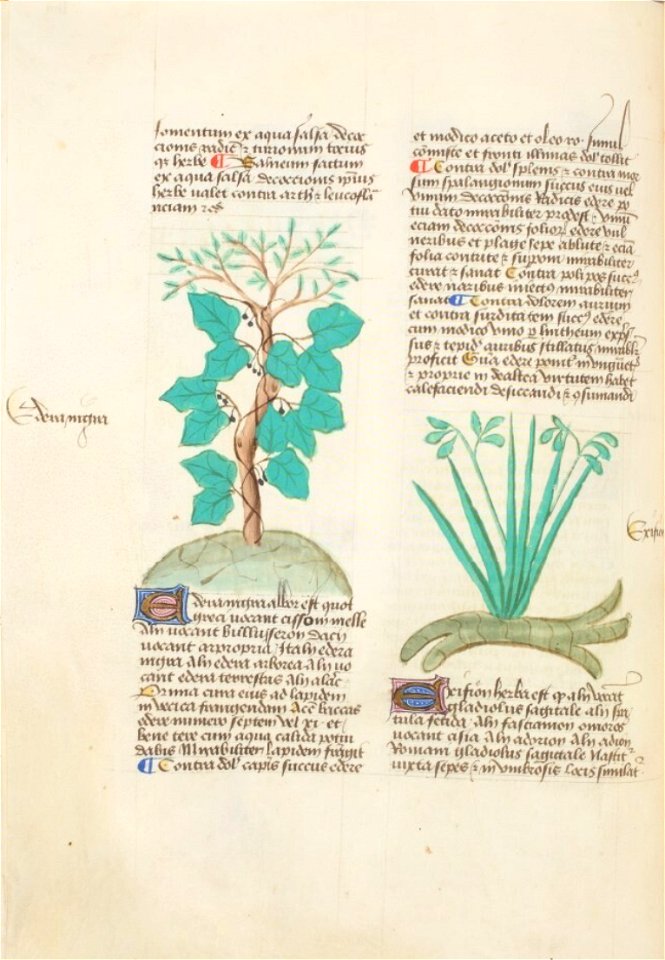 fomentum ex aqua salsa decoc
cionis radic⁊ turionum
herbe ¶ Balneum factum
ex aqua salsa decoccionis ipius
herbe valet contra arth ⁊ leucofla
Edera nigra
Edera nigra albor est quot
greci vocant cisson melle
alij vocant bullusseron dacij
vocant arpropria Italij edera
nigra alij edera arborea alij vo
cant edera terrestris alij
Prima cura eius ad lapidem
in vecica frangendam Acc baccas
edere numero septem vel xi et
bene tere cum aqua calida potui
dabis Mirabiliter lapidem frangit
¶ Contra dol capis succus edere
et modico aceto et oleo ro simul
comiste et fronti illinias dol tollit
¶ Contra dol splenis ⁊ contra mor
sum spalangionum succus eius vel
vinum decoccionis Radicis edere po
tui dato mirabiliter prodest ⁊ vinum
eciam decoccionis folior edere vul
neribus et plagis sepe ablutis ⁊ ecia
folia contrita ⁊ supposita mirabiliter
curat ⁊ sanat Contra poli pos succ
edere naribus iniectus mirabiliter
sanat ¶ Contra dolorem aurium
et contra surditatem succus edere
cum modico vino p lintheum exp
sus ⁊ tepid auribus stillatus mirabilr
proficit Gria edere ponit in unguet
⁊ proprie in dealtea virtutem habet
calefaciendi desiccandi ⁊ osumandi
Exifion herba est qm alij vocat
gladiolus sagitale alij spa
tula fetida alij fasciamon omoros
vocant asia alij adorion alij adion
Romani gladiolus sagittale Nascit
iuxta sepes ⁊ in umbrosis locis simulat